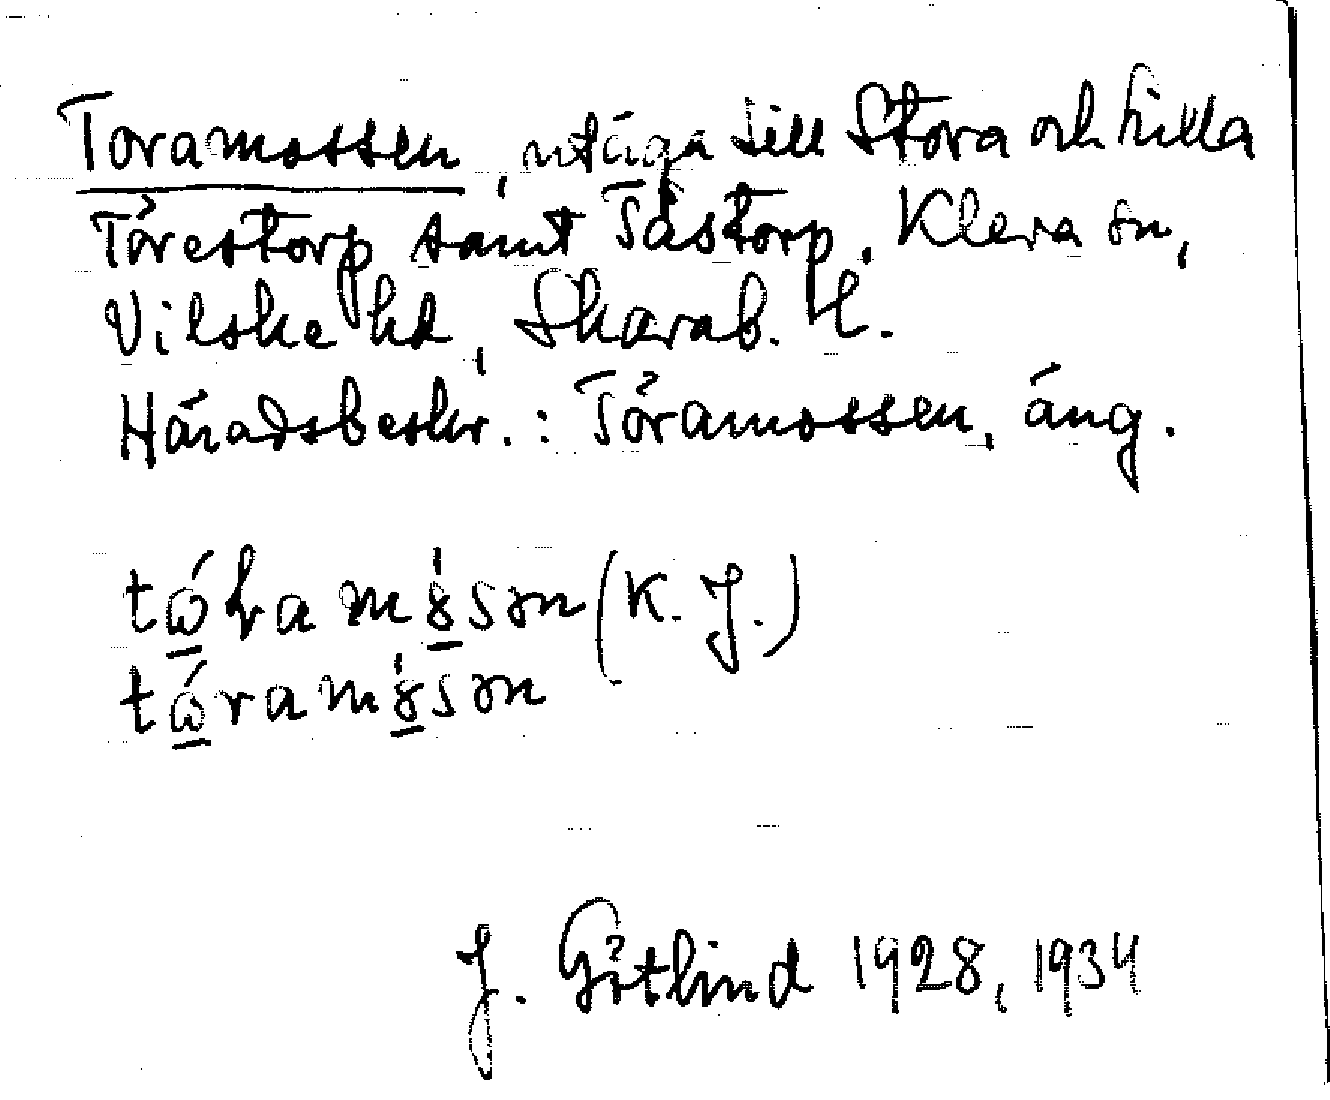 Toramossen, utäga till Stora och Lilla
Törestorp samt Tåstorp, Kleva sn,
Vilske hd, Skarab. l.
Häradsbeskr.: Töramossen, äng.
(K. J.)
J. Götlind 1928, 1934